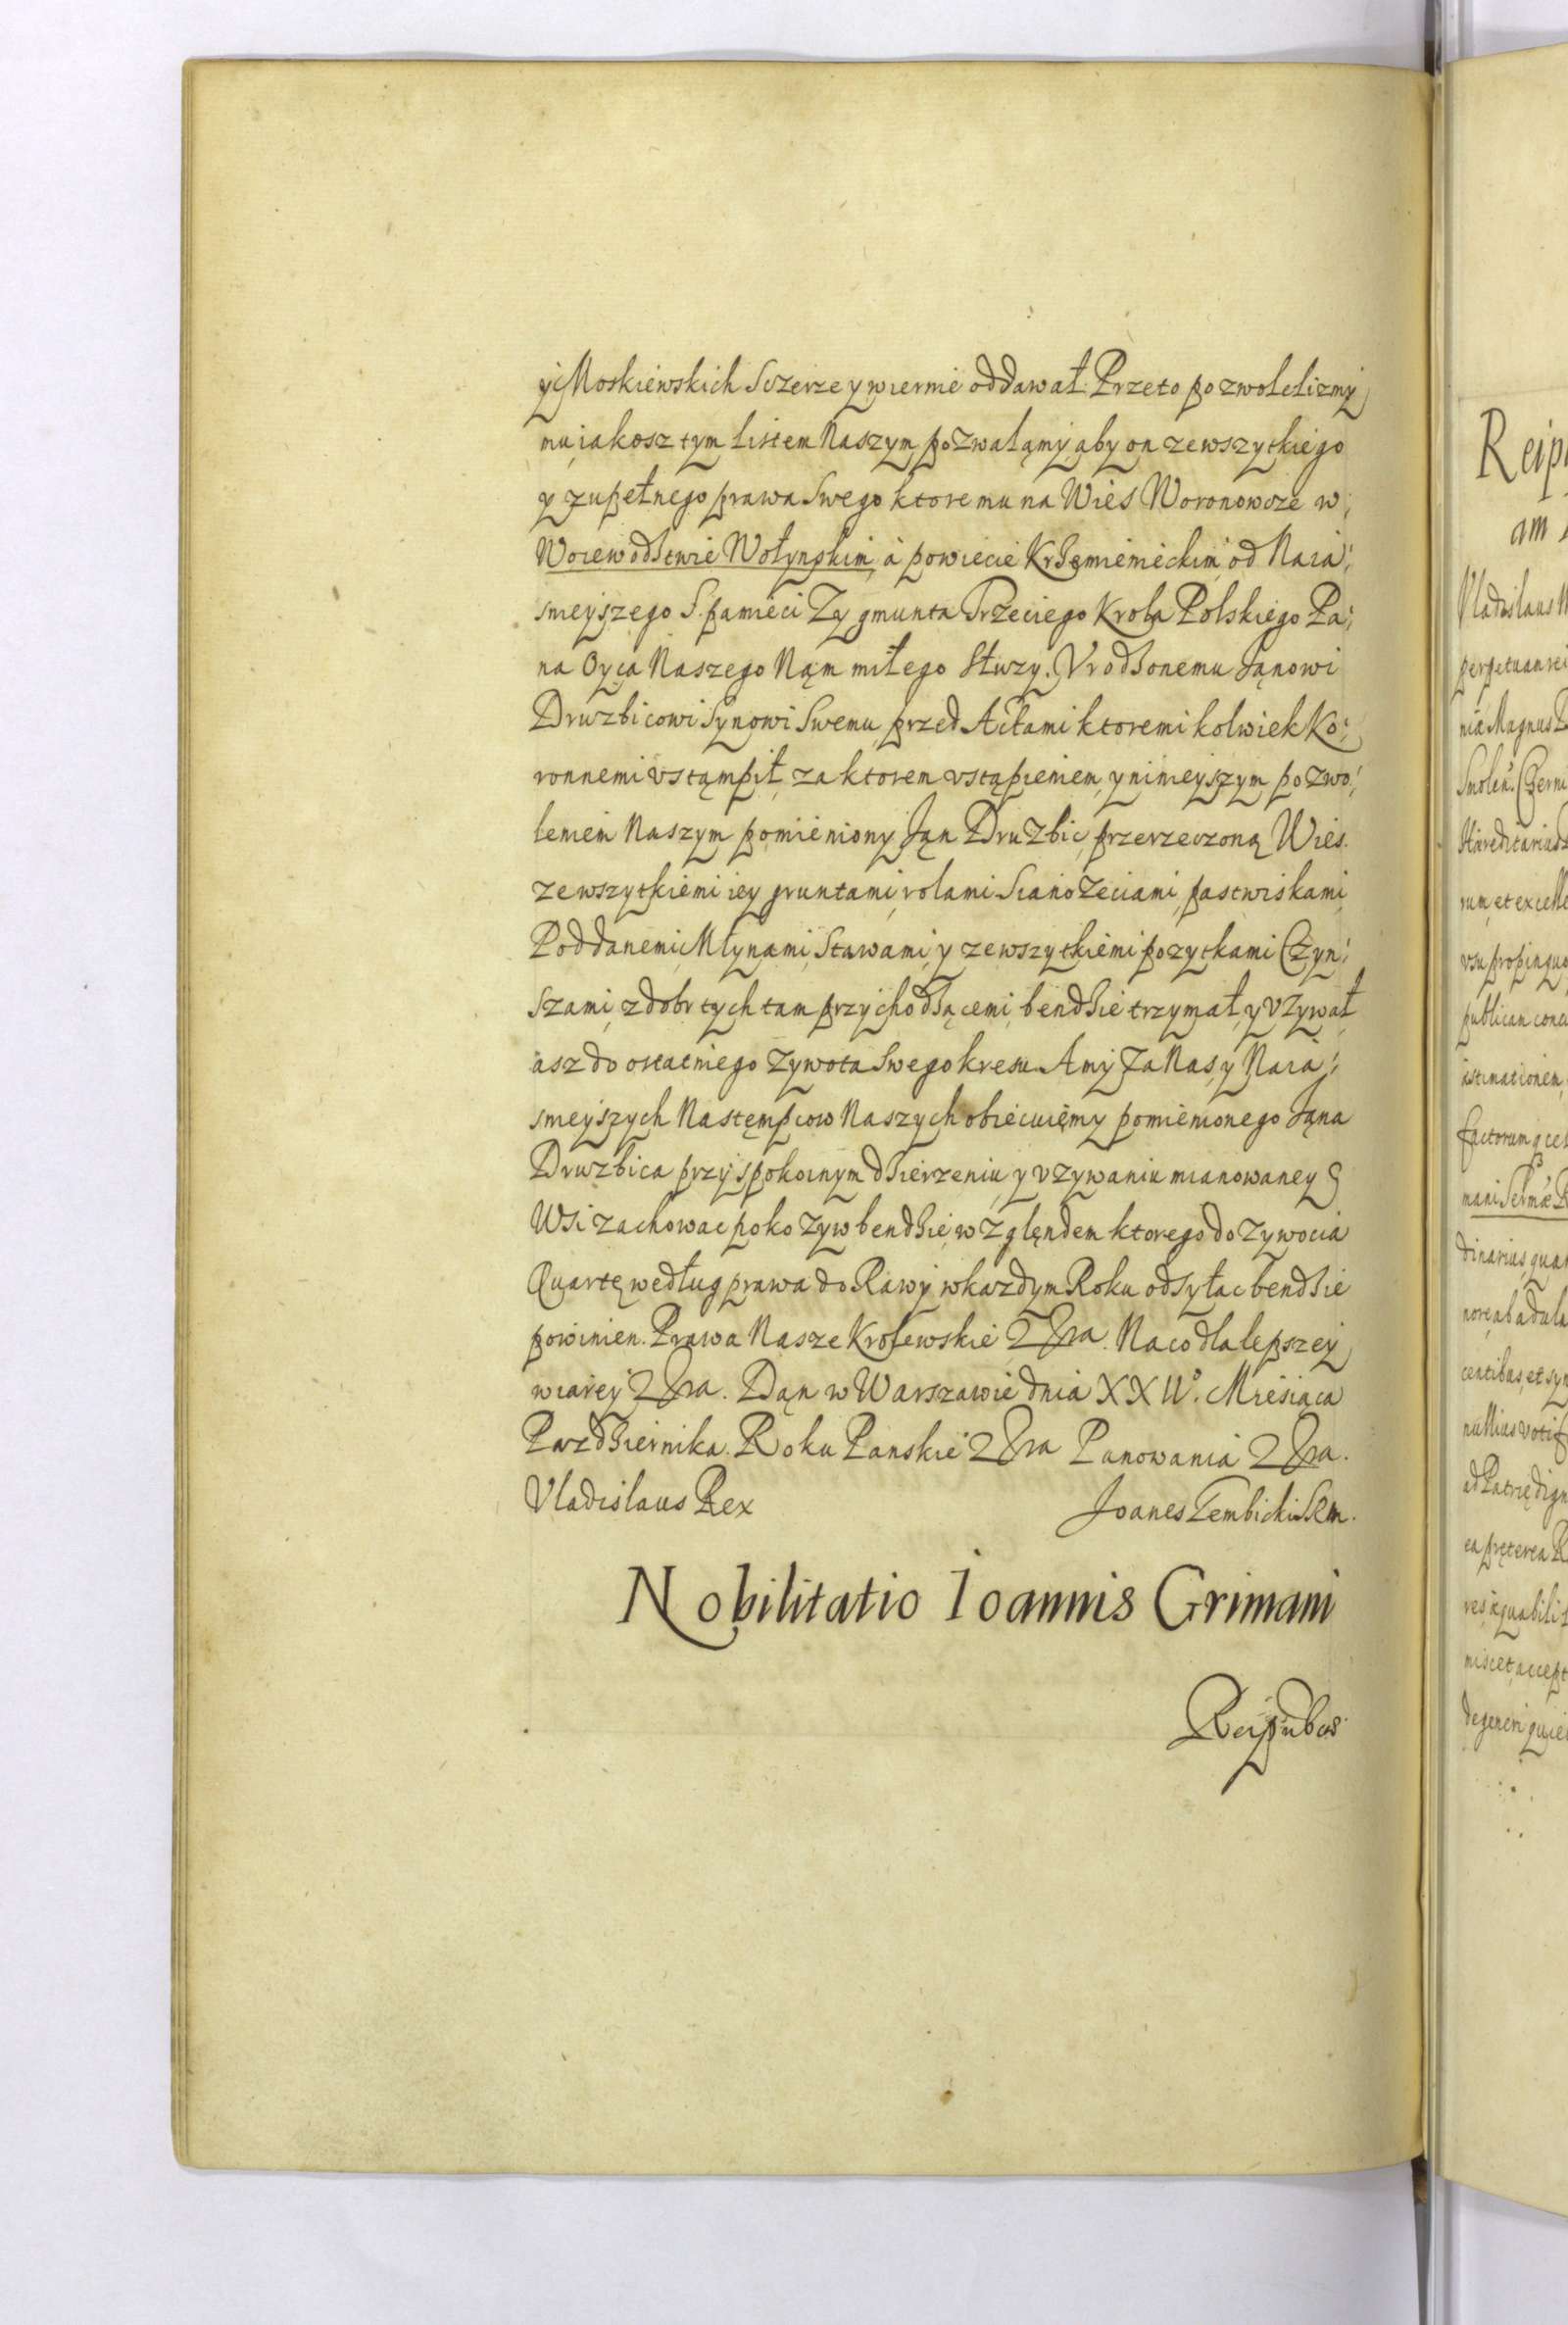 y Moskiewskich Sczerze y wiernie oddawał. Przeto pozwolelizmy
mu, iakosz tym listem Naszym pozwalamy, aby on zewszytkiego
y zupełnego prawa Swego ktore mu na Wies Woronowcze w
Woiewodstwie Wołynskim, à powiecie Krzemienieckim, od Naia:
snieyszego S. pamieci Zygmunta Trzeciego Krola Polskiego Pa:
na Oyca Naszego Nam miłego słuzy. Vrodzonemu Janowi
Druzbicowi Synowi Swemu przed Actami ktoremi kolwiek Ko:
ronnemi vstąmpił, za ktorem vstąpieniem, y ninieyszym pozwo:
leniem Naszym pomieniony Jan Druzbic, przerzeczoną Wies.
zewszytkiemi iey gruntami, rolami Sianozeciami, pastwiskami,
Poddanemi, Młynami, Stawami, y zewszytkiemi pozytkami Czyn:
Szami, z dobr tych tam przychodzącemi, bendzie trzymał, y vzywał
asz do ostatniego zywota Swego kresu. A my za Nas, y Naia:
snieyszych Nastęmpcow Naszych obiecuięmy pomienionego Jana
Druzbica przy spokoinym dzierzeniu, y vzywaniu mianowaney
Wsi zachowac poko zyw bendzie, wzglęndem ktorego dozywocia
Quartę według prawa do Rawy wkazdym Roku odsyłac bendzie
powinien. Prawa Nasze Krolewskie etra. Na co dla lepszey
wiarey etra. Dan w Warszawie dnia XXII°. Miesiąca
Pazdziernika. Roku Panskie etra Panowania etra.
Vladislaus Rex Joanes Gembicki S R m.
Nobilitatio Ioannis Grimani
Reip
am
Vladislaus
perpetuam rei
Magnus
Smolen. Czerni
Hæreditarius
rum, et excelle
vsu propinquo
publicam
factorum
dinarius, quam
nore, ab adula
centibus, et syn
nullius voti
ad Patrię dign
ea pręterea
miscet, accept
degeneri